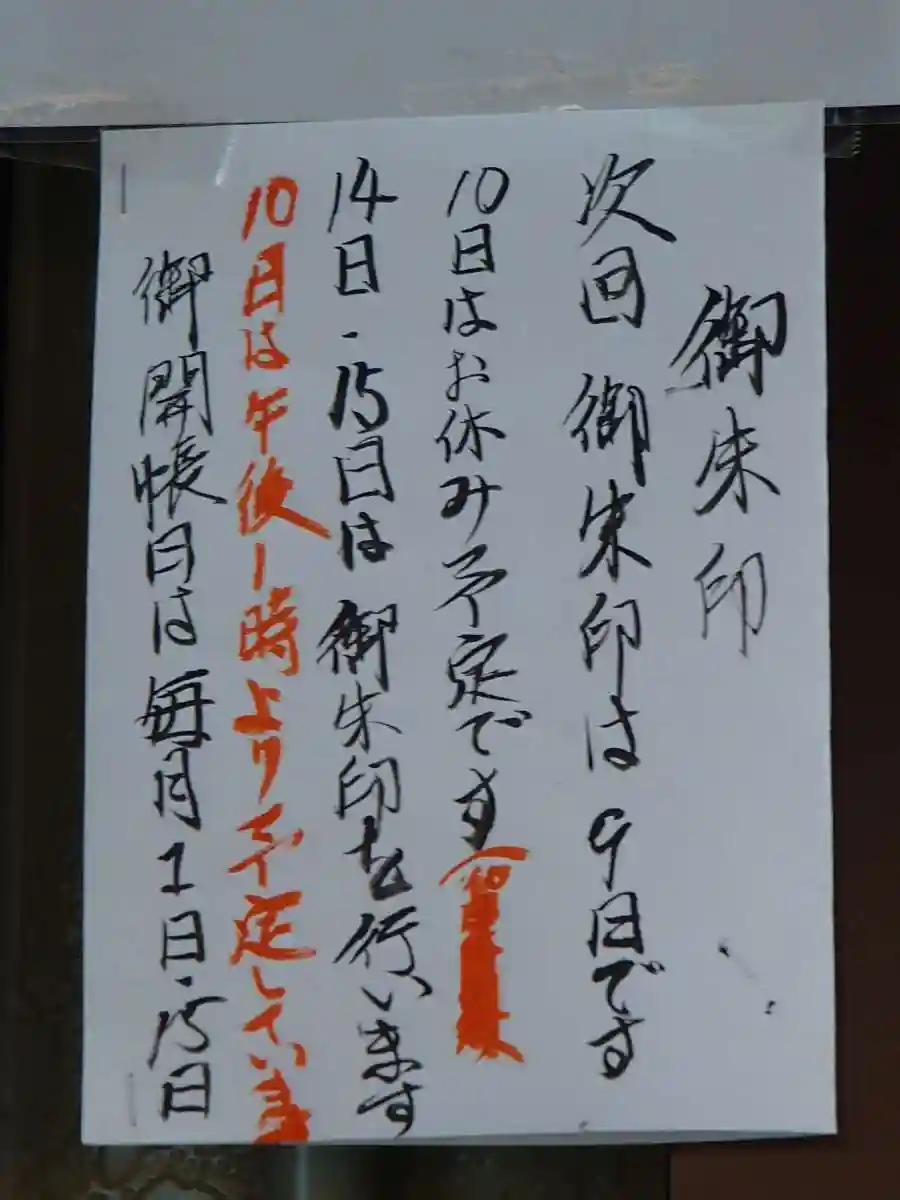 御朱印
次回 御朱印は9日です
10日はお休み予定です
14日・15日は御朱印を行います
10日は午後1時より予定しています
御開帳日は毎月1日・15日